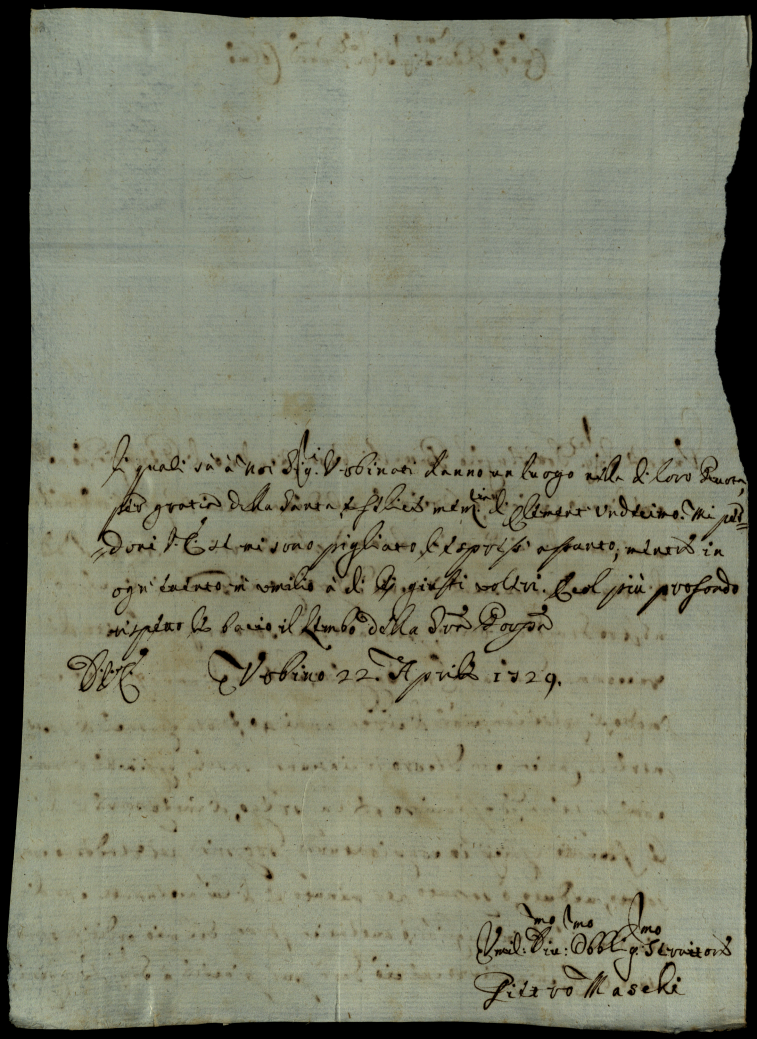 I quali sù à noi Sig.ri Vrbinati danno un luogo nella di loro Ruota,
per gratia della Santa, e felice mem:ria di Clemente undecimo. Mi per=
=doni V. E. se mi sono pigliato l' ; mentre in
ogni evento, mi umilio à di giusti voleri. E col più profondo
rispetto le bacio il lembo della Sua
D. V. E. Vrbino 22. Aprile 1729.
Vmil:mo Div:mo Obblig:mo Servitore
Pietro Maschi